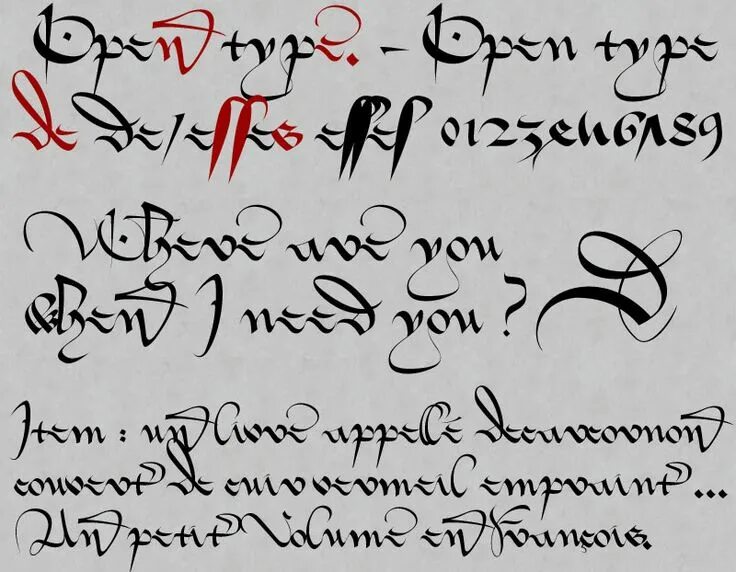 Open type. – Open type
de de/esses esses 0123456789
Where are you
when I need you ? D
Item : un livre appellé
couvert de cuir vermeil empraint ...
Un petit Volume en François.